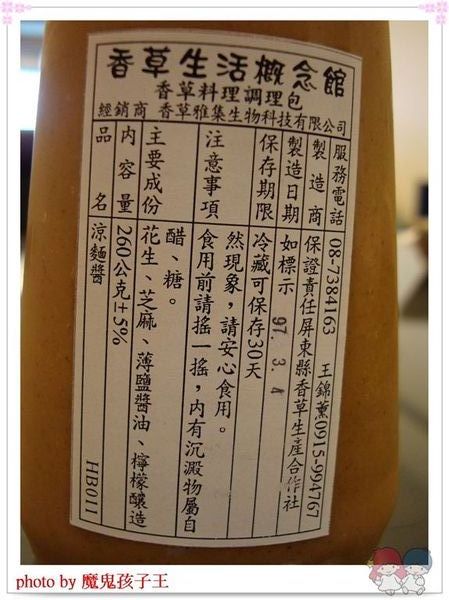 香草生活概念館
香草料理調理包
經銷商 香草雅集生物科技有限公司
服務電話 08-7384163 王錦薰0915-994767
製造商 保證責任屏東縣香草生產合作社
製造日期 如標示 97. 3. 4
保存期限 冷藏可保存30天
注意事項 食用前請搖一搖，內有沉澱物屬自
然現象，請安心食用。
主要成份 花生、芝麻、薄鹽醬油、檸檬釀造
醋、糖。
內容量 260公克±5%
品名 涼麵醬 HB011
photo by 魔鬼孩子王